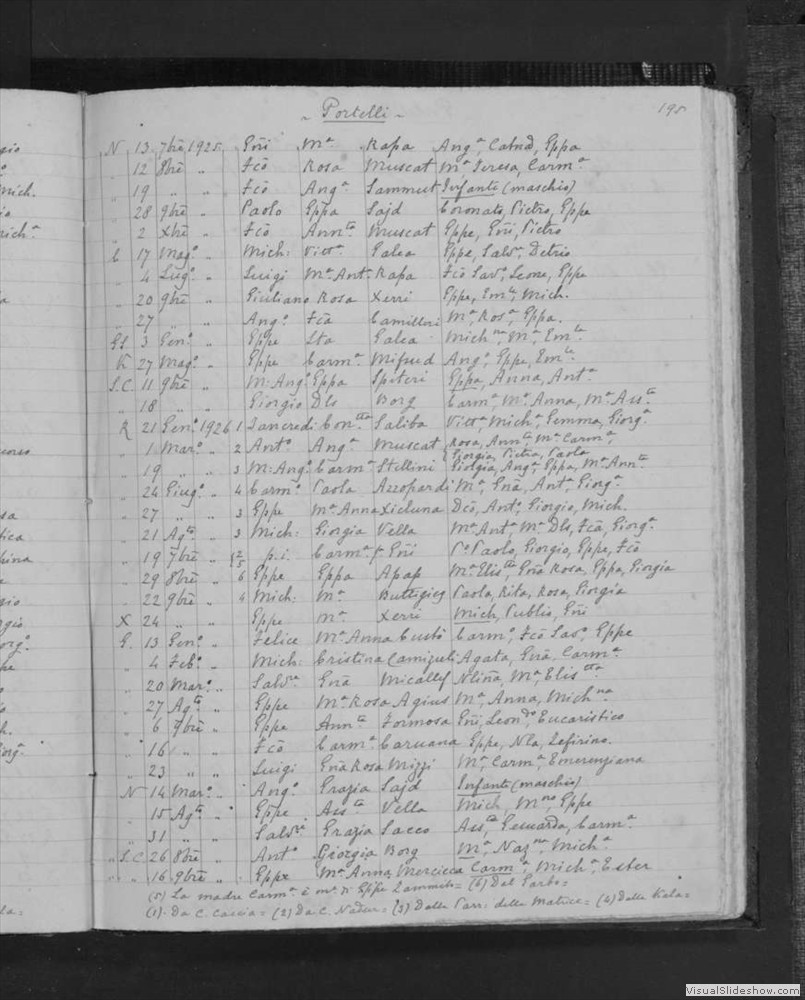 - Portelli -
195
N 13 7bre 1925 Gñi Mª Rapa Angª Catnd, Eppa
12 8bre " Fcõ Rosa Muscat Mª Teresa, Carmª
" 19 " " Fcõ Angª Sammut Infante (maschio)
" 28 9bre " Paolo Eppa Sajd Coronato, Pietro, Eppe
" 2 Xbre " Fcõ Annta Muscat Eppe, Gñi, Pietro
17 Magº " Mich: Vittª Galea Eppe, Salvr,
" 4 Lugº " Luigi Mª Antª Rapa Fcõ Savº, Leone, Eppe
" 20 9bre " Giuliano Rosa Xerri Eppe, Emle, Mich.
" 27 " " Angº Fcã Camilleri Mª, Rosª, Eppa.
3 Genº " Eppe Galea Mich, Mª, Emla
K 27 Magº " Eppe Carmª Mifsud Angº, Eppe, Emle
S.C. 11 9bre " M: Angº Eppa Spiteri Eppa, Anna, Antª
" 18 " " Giorgio Dls Borg Carmª, Mª Anna, Mª Assta
R 21 Genº 1926 1 Tancredi Contta Saliba Vittª, Michª, Gemma, Giorgª
" 1 Marº " 2 Antº Angª Muscat Rosa, Annta, Mª Carmª,
Giorgia, Pietra, Paola
19 " " 3 M: Angº Carmª Stellini Giorgia, Angª, Eppa, Mª Annta
" 24 Giugº " 4 Carmº Paola Azzopardi Mª, Gnã, Antª, Giorgª
" 27 " " 3 Eppe Mª Anna Xicluna Dcõ, Antº, Giorgio, Mich.
" 21 Agto " 3 Mich: Giorgia Vella Mª Antª, Mª Dls, Fcã, Giorgª
" 19 7bre " 2/5 p.i. Carmª f Gñi Pº Paolo, Giorgio, Eppe, Fcõ
" 29 8bre " 6 Eppe Eppa Apap Mª Elistta, Gnã Rosa, Eppa, Giorgia
" 22 9bre " 4 Mich: Mª Buttigieg Paola, Rita, Rosa, Giorgia
X 24 " " Eppe Mª Xerri Mich, Publio, Gñi
G. 13 Genº " Felice Mª Anna Carmº, Fcõ Savº, Eppe
" 4 Febº " Mich: Cristina Camizuli Agata, Gnã, Carmª
" 20 Marº " Salvre Gnã Micallef Nlina, Mª Elistta
" 27 Agto " Eppe Mª Rosa Agius Mª, Anna, Michna
" 6 7bre " Eppe Annta Formosa Gñi, Leondo, Eucaristico
" 16 " " Fcõ Carmª Caruana Eppe, Nla, Zefirino.
" 23 " " Luigi Gnã Rosa Mizzi Mª, Carmª, Emerenziana
N 14 Marº " Angº Grazia Sajd Infante (maschio)
" 15 Agto " Eppe Assta Vella Mich, Mno, Eppe
" 31 " " Salvre Grazia Sacco Assta, Carmª
" S.C. 26 8bre " Antº Giorgia Borg Mª, Nazna, Michª
" " 16 9bre " Eppe Mª Anna Mercieca Carmª, Michª, Ester
(5) La madre Carmª è mª di Eppe Zammit= (6) Dal
(1) Da C. Caccia= (2) Da C. Nadur= (3) Dalla Parr: della Matrice= (4) Dalla Kala=
VisualSlideshow.com